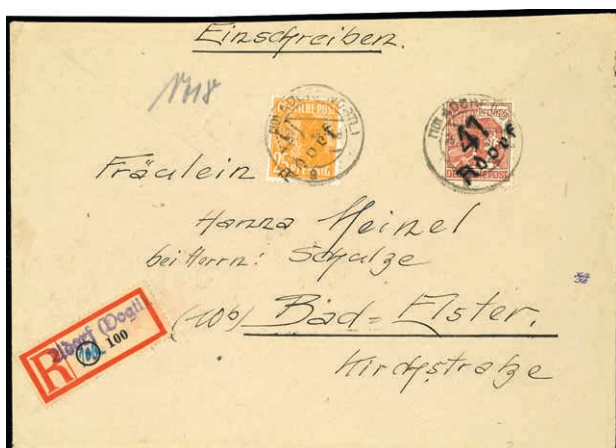 Einschreiben.
1718
25 PFENNIG
DEUTSCHE POST
41
Adorf
Fräulein
Hanna Heinel
bei Herrn: Schulze
(10b) Bad=Elster.
Kirchstraße
R
Adorf (Vogtl)
100